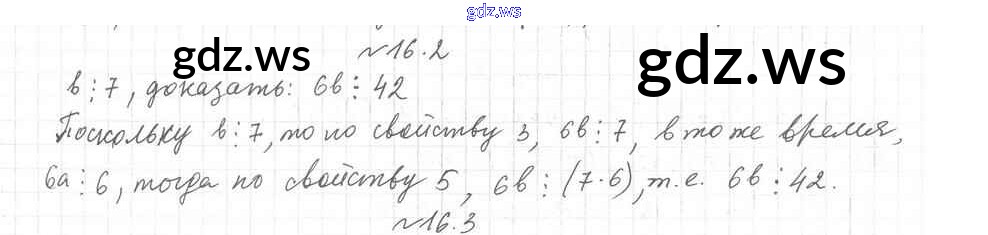 gdz.ws
№16.2
gdz.ws gdz.ws
в⋮7, доказать: 6в⋮42
Поскольку в⋮7, то по свойству 3, 6в⋮7, в то же время,
6а⋮6, тогда по свойству 5, 6в⋮(7·6), т.е. 6в⋮42.
№16.3